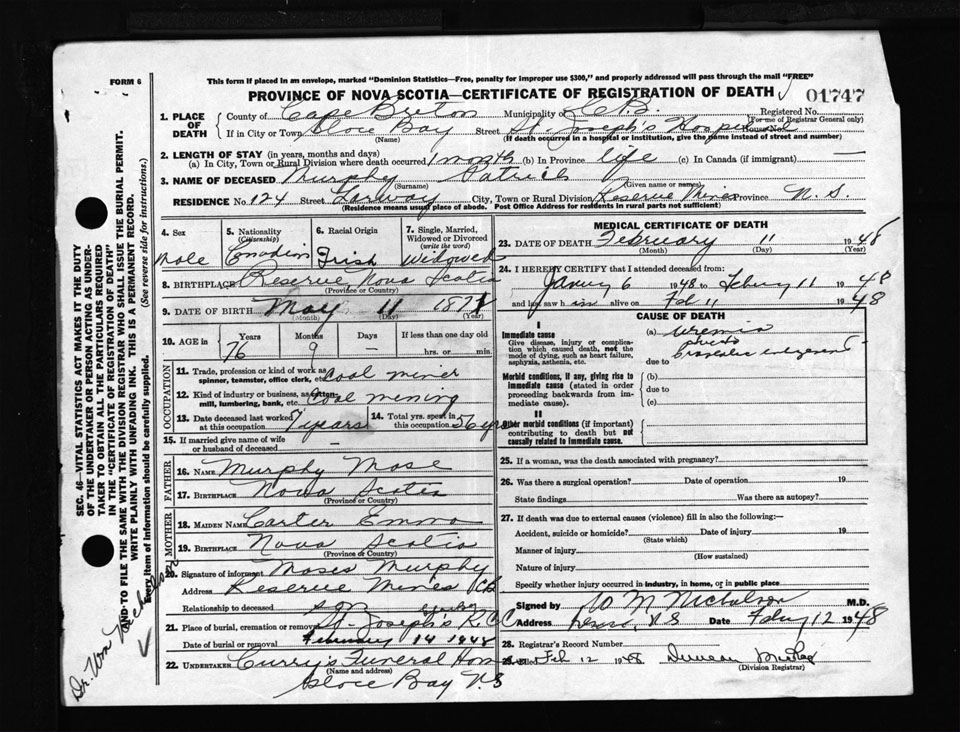 FORM 6
This form if placed in an envelope, marked "Dominion Statistics—Free, penalty for improper use $300," and properly addressed will pass through the mail "FREE"
PROVINCE OF NOVA SCOTIA—CERTIFICATE OF REGISTRATION OF DEATH
01747
1. PLACE OF DEATH
County of Cape Breton Municipality of C.B. Registered No.
(For use of Registrar General only)
If in City or Town Glace Bay Street St. Joseph's Hospital House No.
(Name) (If death occurred in a hospital or institution, give the name instead of street and number)
2. LENGTH OF STAY (in years, months and days)
(a) In City, Town or Rural Division where death occurred 1 month (b) In Province life (c) In Canada (if immigrant) —
3. NAME OF DECEASED Murphy Patrick
(Surname) (Given name or names)
RESIDENCE No. 124 Street City, Town or Rural Division Reserve Mines Province N. S.
(Residence means usual place of abode. Post Office Address for residents in rural parts not sufficient)
4. Sex
Male
5. Nationality (Citizenship)
Canadian
6. Racial Origin
Irish
7. Single, Married, Widowed or Divorced (write the word)
Widowed
8. BIRTHPLACE Reserve Nova Scotia
(Province or Country)
9. DATE OF BIRTH May 11 1871
(Month) (Day) (Year)
10. AGE in Years Months Days If less than one day old
76 9 — hrs. or min.
OCCUPATION
11. Trade, profession or kind of work as spinner, teamster, office clerk, etc. Coal miner
12. Kind of industry or business, as cotton-mill, lumbering, bank, etc. Coal mining
13. Date deceased last worked at this occupation 7 years
14. Total yrs. spent in this occupation 56 yrs
15. If married give name of wife or husband of deceased —
FATHER
16. NAME Murphy Mose
17. BIRTHPLACE Nova Scotia
(Province or Country)
MOTHER
18. MAIDEN NAME Carter Emma
19. BIRTHPLACE Nova Scotia
(Province or Country)
20. Signature of informant Moses Murphy
Address Reserve Mines CB
Relationship to deceased son
21. Place of burial, cremation or removal St. Joseph's R.C.C
Date of burial or removal February 14 1948
22. UNDERTAKER Curry's Funeral Home
(Name and address)
Glace Bay N.S
MEDICAL CERTIFICATE OF DEATH
23. DATE OF DEATH February 11 1948
(Month) (Day) (Year)
24. I HEREBY CERTIFY that I attended deceased from:
January 6 1948 to Febury 11 1948
and last saw him alive on Feb 11 1948
CAUSE OF DEATH
I
Immediate cause
Give disease, injury or complication which caused death, not the mode of dying, such as heart failure, asphyxia, asthenia, etc.
(a) Uremia
due to
Morbid conditions, if any, giving rise to immediate cause (stated in order proceeding backwards from immediate cause).
(b)
due to
(c)
II
Other morbid conditions (if important) contributing to death but not causally related to immediate cause.
25. If a woman, was the death associated with pregnancy?
26. Was there a surgical operation? Date of operation 19
State findings Was there an autopsy?
27. If death was due to external causes (violence) fill in also the following:—
Accident, suicide or homicide? Date of injury 19
(State which)
Manner of injury
(How sustained)
Nature of injury
Specify whether injury occurred in industry, in home, or in public place
Signed by W M Nicholson M.D.
Address N S Date Febuy 12 1948
28. Registrar's Record Number
29. Filed Feb 12 1948 Duncan
(Division Registrar)
SEC. 46—VITAL STATISTICS ACT MAKES IT THE DUTY
OF THE UNDERTAKER OR PERSON ACTING AS UNDER-
TAKER TO OBTAIN ALL THE PARTICULARS REQUIRED
IN THE "CERTIFICATE OF REGISTRATION OF DEATH"
AND TO FILE THE SAME WITH THE DIVISION REGISTRAR WHO SHALL ISSUE THE BURIAL PERMIT.
WRITE PLAINLY WITH UNFADING INK. THIS IS A PERMANENT RECORD.
Every item of information should be carefully supplied. (See reverse side for instructions.)